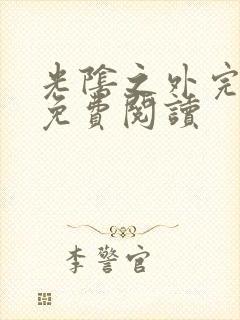 光陰之外完
免費閱讀
李警官